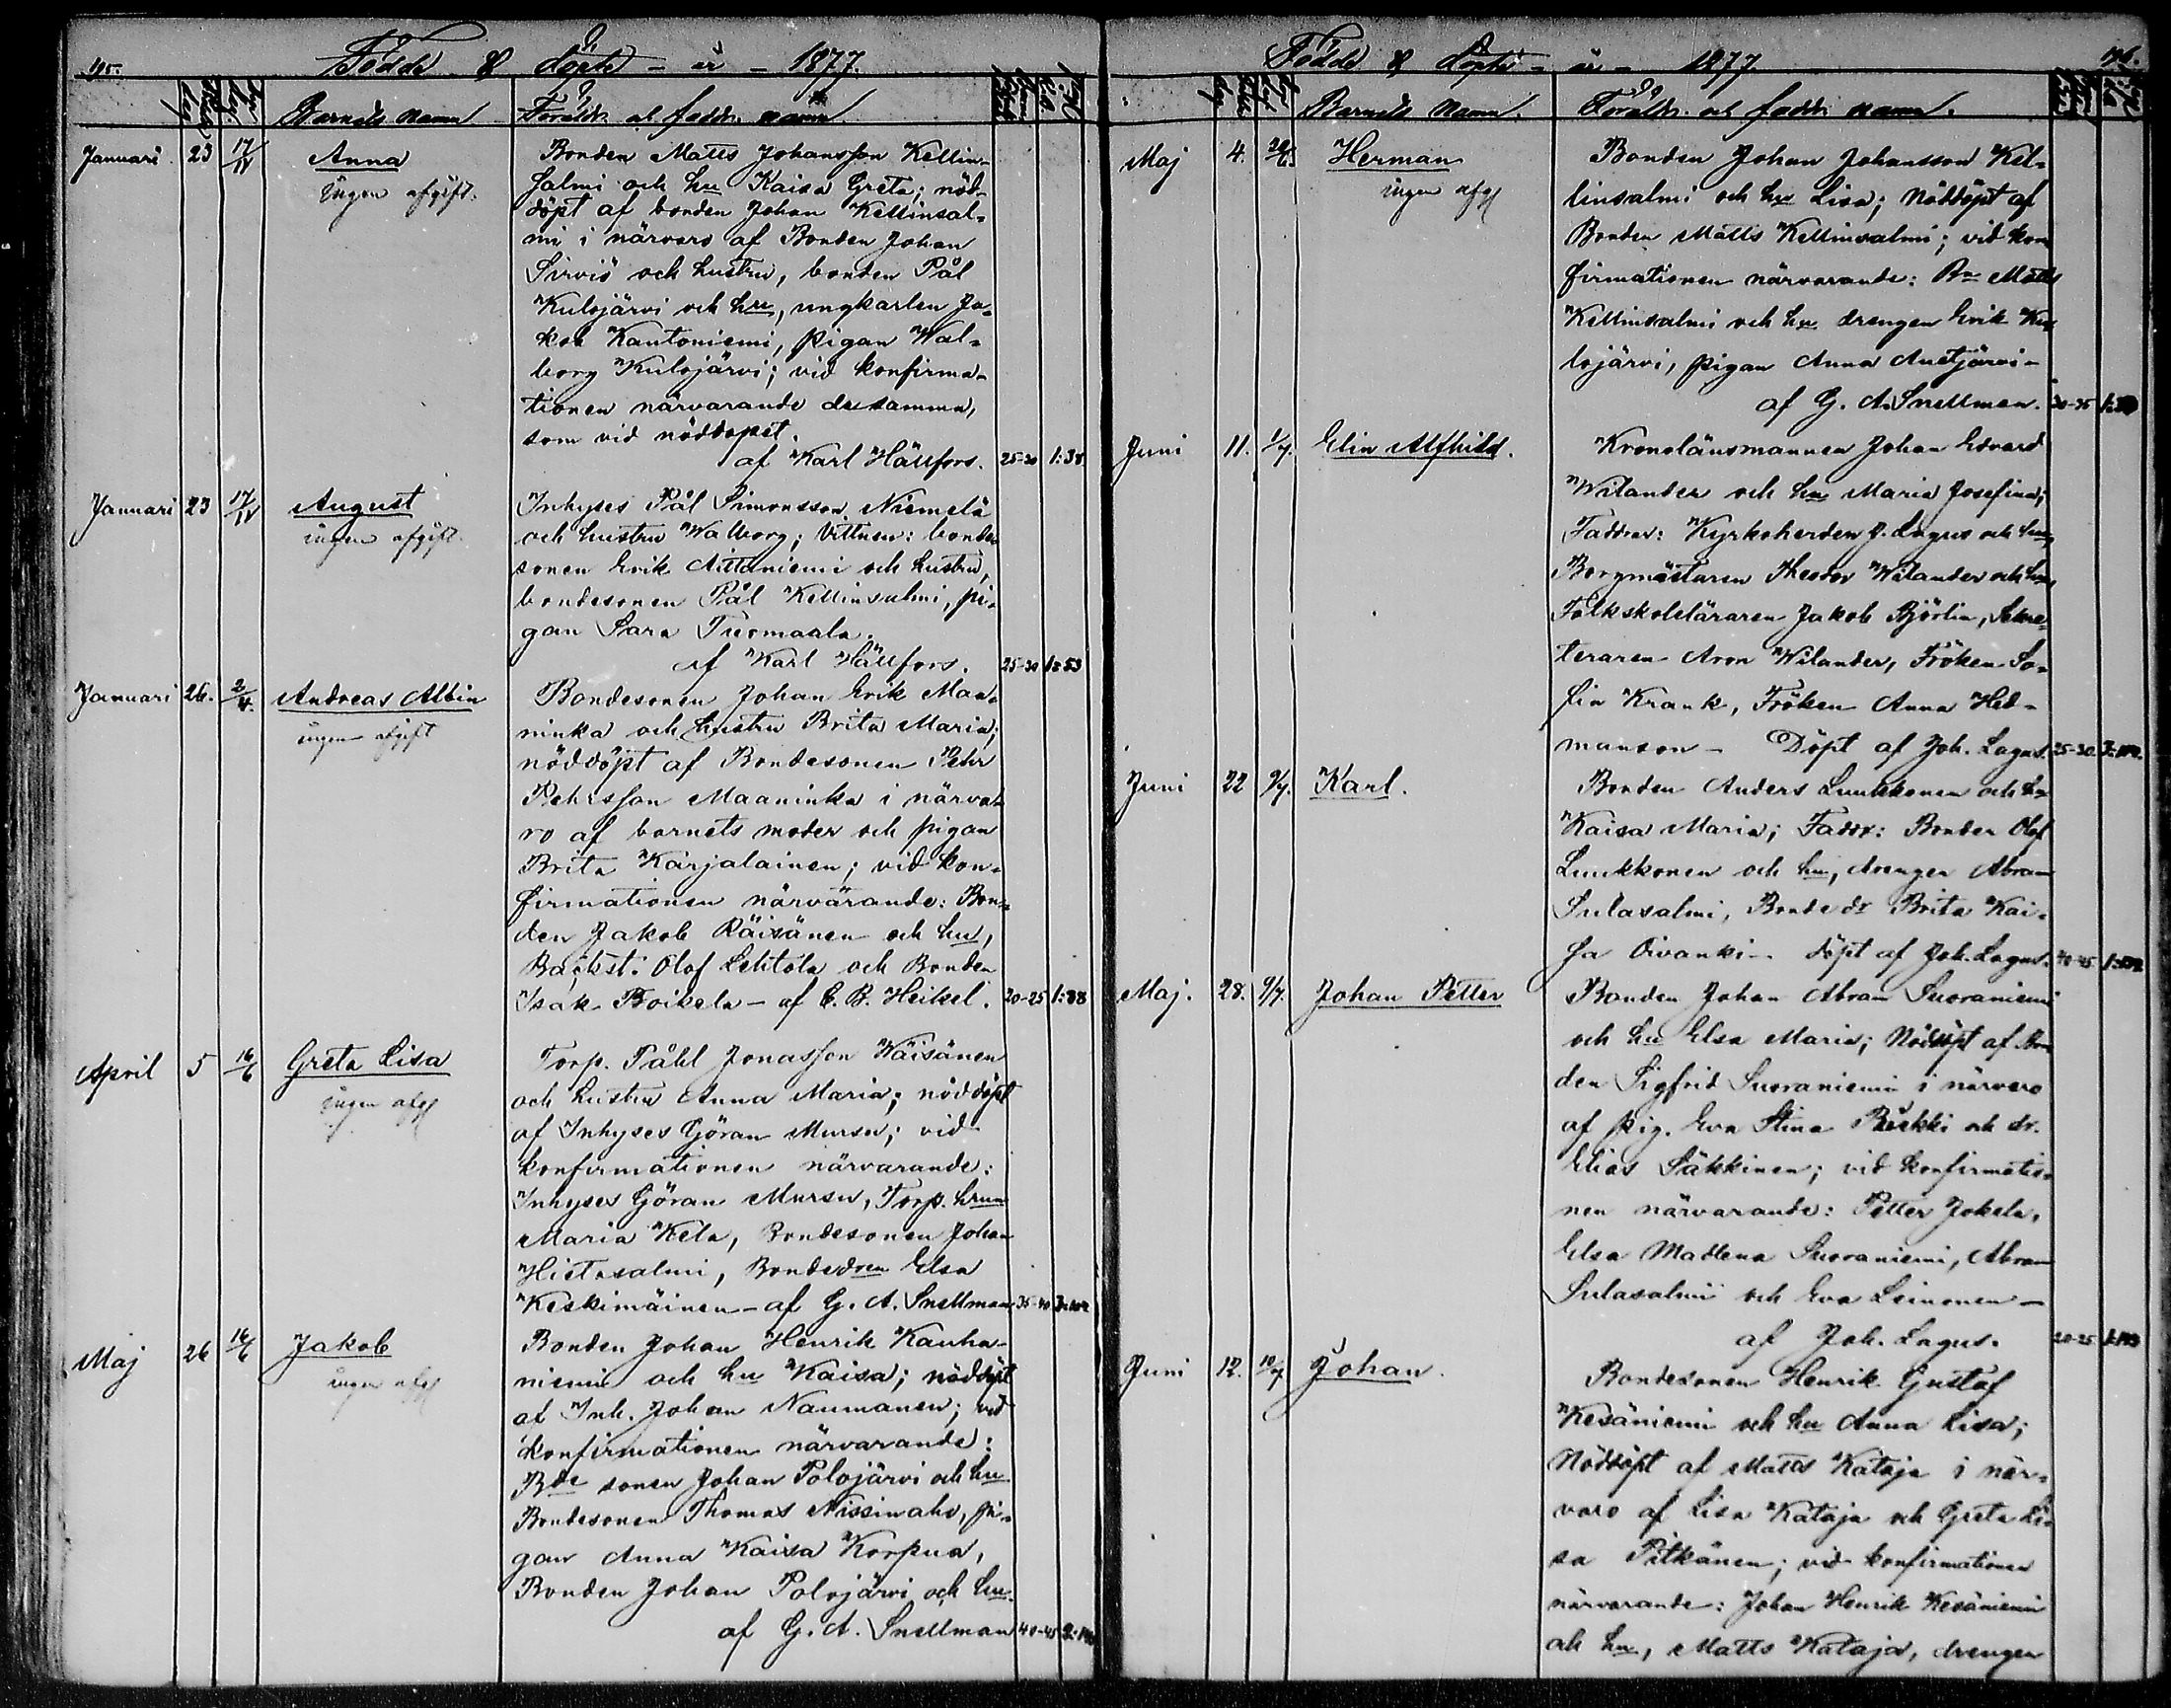 195.
Födde & döpte - år - 1877.
Barnets namn
Föräldr. och faddr. namn
Januari 23 17/IV Anna
ingen afgift.
Bonden Matts Johansson Kellin-
salmi och hu Kaisa Greta; nöd-
döpt af bonden Johan Kellinsal-
mi i närvaro af Bonden Johan
Sirviö och hustru, bonden Pål
Kulojärvi och hu, ungkarlen Ja-
kob Kantoniemi, pigan Wal-
borg Kulojärvi; vid konfirma-
tionen närvarande desamma,
som vid nöddopet.
af Karl Hällfors. 25-30 1:38
Januari 23 17/IV August
ingen afgift.
Inhyses Pål Simonsson Niemelä
och hustru Walborg; Vittnen: bonde
sonen Erik Aittaniemi och hustru,
bondesonen Pål Kellinsalmi, pi-
gan Sara Tuomaala.
af Karl Hällfors. 25-30 1:53
Januari 26. 2/4. Andreas Albin
ingen afgift
Bondesonen Johan Erik Maa-
ninka och hustru Brita Maria;
nöddöpt af Bondesonen Pehr
Pehrsson Maaninka i närva-
ro af barnets moder och pigan
Brita Karjalainen; vid kon-
firmationen närvarande: Bon-
den Jakob Räisänen och hu,
Backst: Olof Lehtola och Bonden
Isak Poikela - af C. B. Heikel. 20-25 1:88
April 5 16/6 Greta Lisa
ingen afg
Torp. Påhl Jonasson Käisänen
och hustru Anna Maria; nöddöpt
af Inhyses Göran Mursu; vid
konfirmationen närvarande:
Inhyses Göran Mursu, Torp. hrun
Maria Kela, Bondesonen Johan
Hietasalmi, Bondedren Elsa
Keskimäinen - af G. A. Snellman 35-40 2:102
Maj 26 16/6 Jakob
ingen afg
Bonden Johan Henrik Kauha-
niemi och hu Kaisa; nöddöpt
af Inh. Johan Naumanen; vid
konfirmationen närvarande:
Bde sonen Johan Polojärvi och hu
Bondesonen Thomas Nissinaho, pi-
gan Anna Kaisa Korpua,
Bonden Johan Polojärvi och hu.
af G. A. Snellman 40-45
196.
Födde & döpte - år - 1877.
Barnets Namn.
Föräldr. och faddr. namn.
Maj 4. Herman
ingen afg
Bonden Johan Johansson Kel-
linsalmi och hu Lisa; Nöddöpt af
Bonden Matts Kellinsalmi; vid kon
firmationen närvarande: Bn Matts
Kellinsalmi och hu drengen Erik Ku
lojärvi, pigan Anna Autjärvi -
af G. A. Snellman.
Juni 11. 1/7. Elin Alfhild.
Kronolänsmannen Johan Edvard
Wilander och hu Maria Josefina;
Faddrar: Kyrkoherden J. Lagus och hu,
Borgmästaren Theodor Wilander och hu,
Folkskoleläraren Jakob Björlin, Sekre-
teraren Aron Wilander, Fröken So-
fia Krank, Fröken Anna Hed-
manson - Döpt af Joh. Lagus. 25-30
Juni 22 9/7. Karl.
Bonden Anders Luukkonen och hu
Kaisa Maria; Faddr: Bonden Olof
Luukkonen och hu, drengen Abram
Sulasalmi, Bonde dr Brita Kai-
sa Oivanki - döpt af Joh. Lagus. 40-45
Maj. 28. 9/7. Johan Petter
Bonden Johan Abram Suoraniemi
och hu Elsa Maria; Nöddöpt af Bon
den Sigfrid Suoraniemi i närvaro
af pig. Eva Stina Pirkki och dr.
Elias Säkkinen; vid konfirmatio-
nen närvarande: Petter Jokela,
Elsa Madlena Suoraniemi, Abram
Sulasalmi och Eva Leinonen -
af Joh. Lagus. 20-25
Juni 12. 10/7 Johan.
Bondesonen Henrik Gustaf
Kesäniemi och hu Anna Lisa;
Nöddöpt af Matts Kataja i när-
varo af Lisa Kataja och Greta Li-
sa Pitkänen; vid konfirmationen
närvarande: Johan Henrik Kesäniemi
och hu, Matts Kataja, drengen